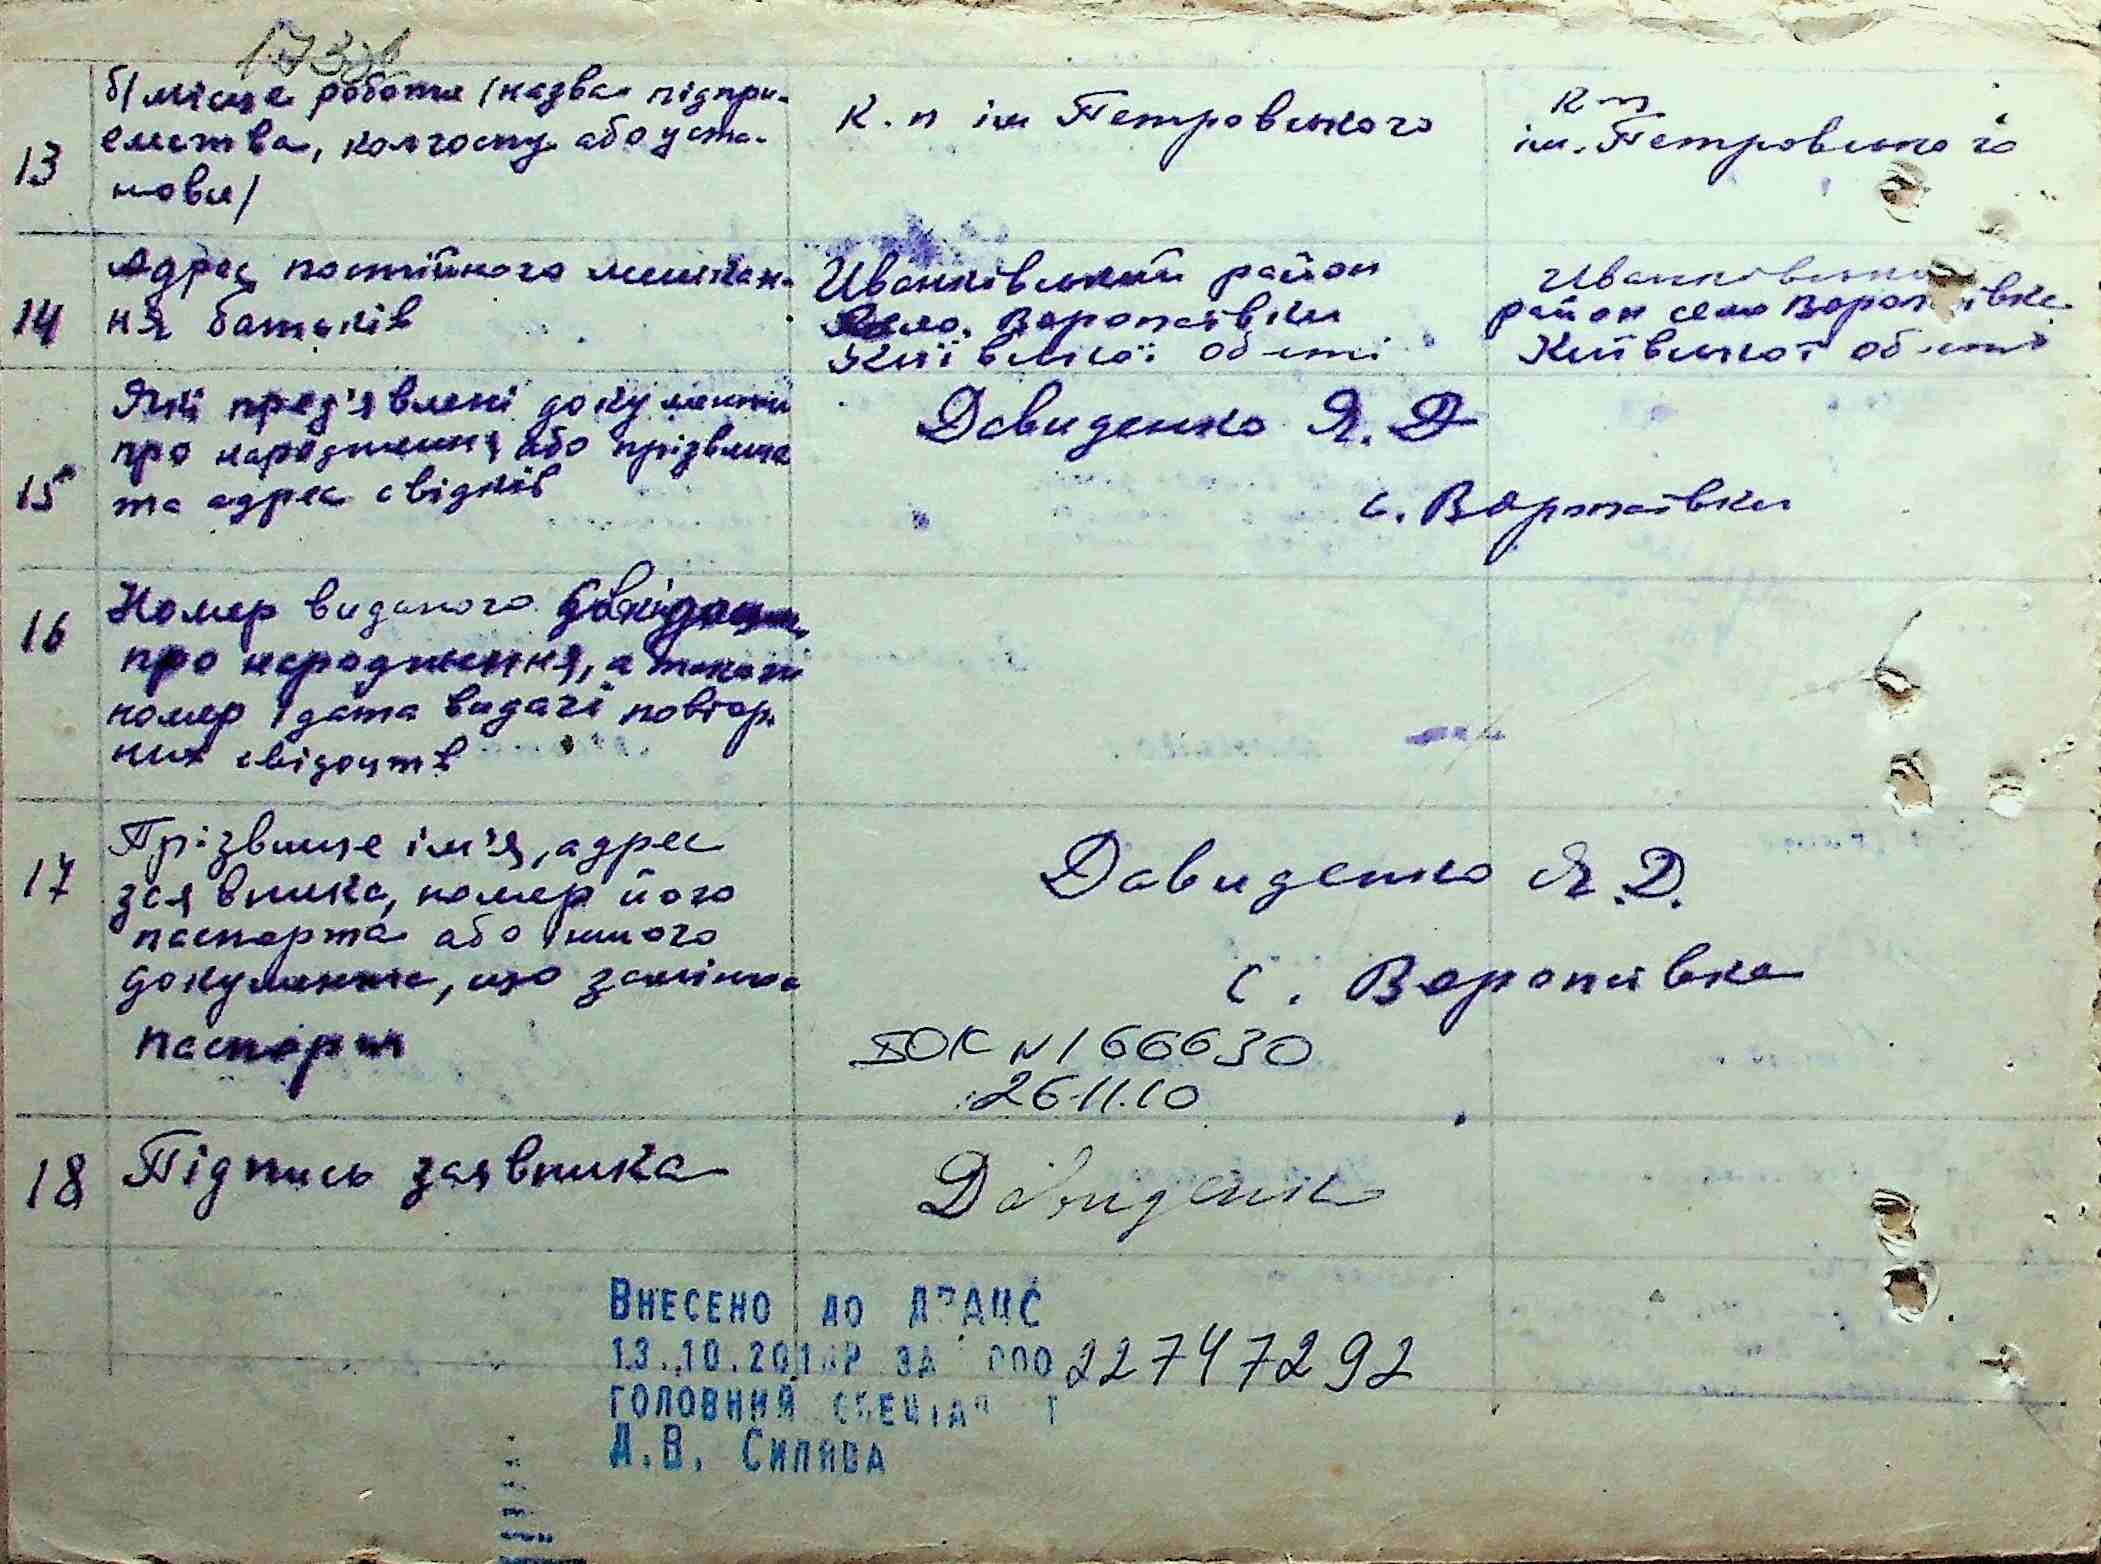 173зв
13
б/ місце роботи /назва підпри-
ємства, колгоспу або уста-
нови/
К-п ім Петровського
К-п
ім. Петровського
14
Адрес постійного мешкан-
ня батьків
Иванківський район
село. Воропаївка
Київської об-сті
Иванківський
район село Воропаївка
Київської об-сті
15
Які пред'явлені документи
про народження або прізвища
та адрес свідків
Давиденко Я. Д
с. Воропаївки
16
Номер виданого
про народження, а також
номер і дата видачі повтор-
них свідоцтв
17
Прізвище ім'я, адрес
заявника, номер його
паспорта або іншого
документа, що замінює
паспорти
Давиденко Я. Д.
с. Воропаївка
БОК N 166630
26.11.10
18
Підпись заявника
Давиденко
Внесено до ДРАЦС
13.10.201 Р ЗА 000 22747292
головний спеціаліст
Д.В. Силява